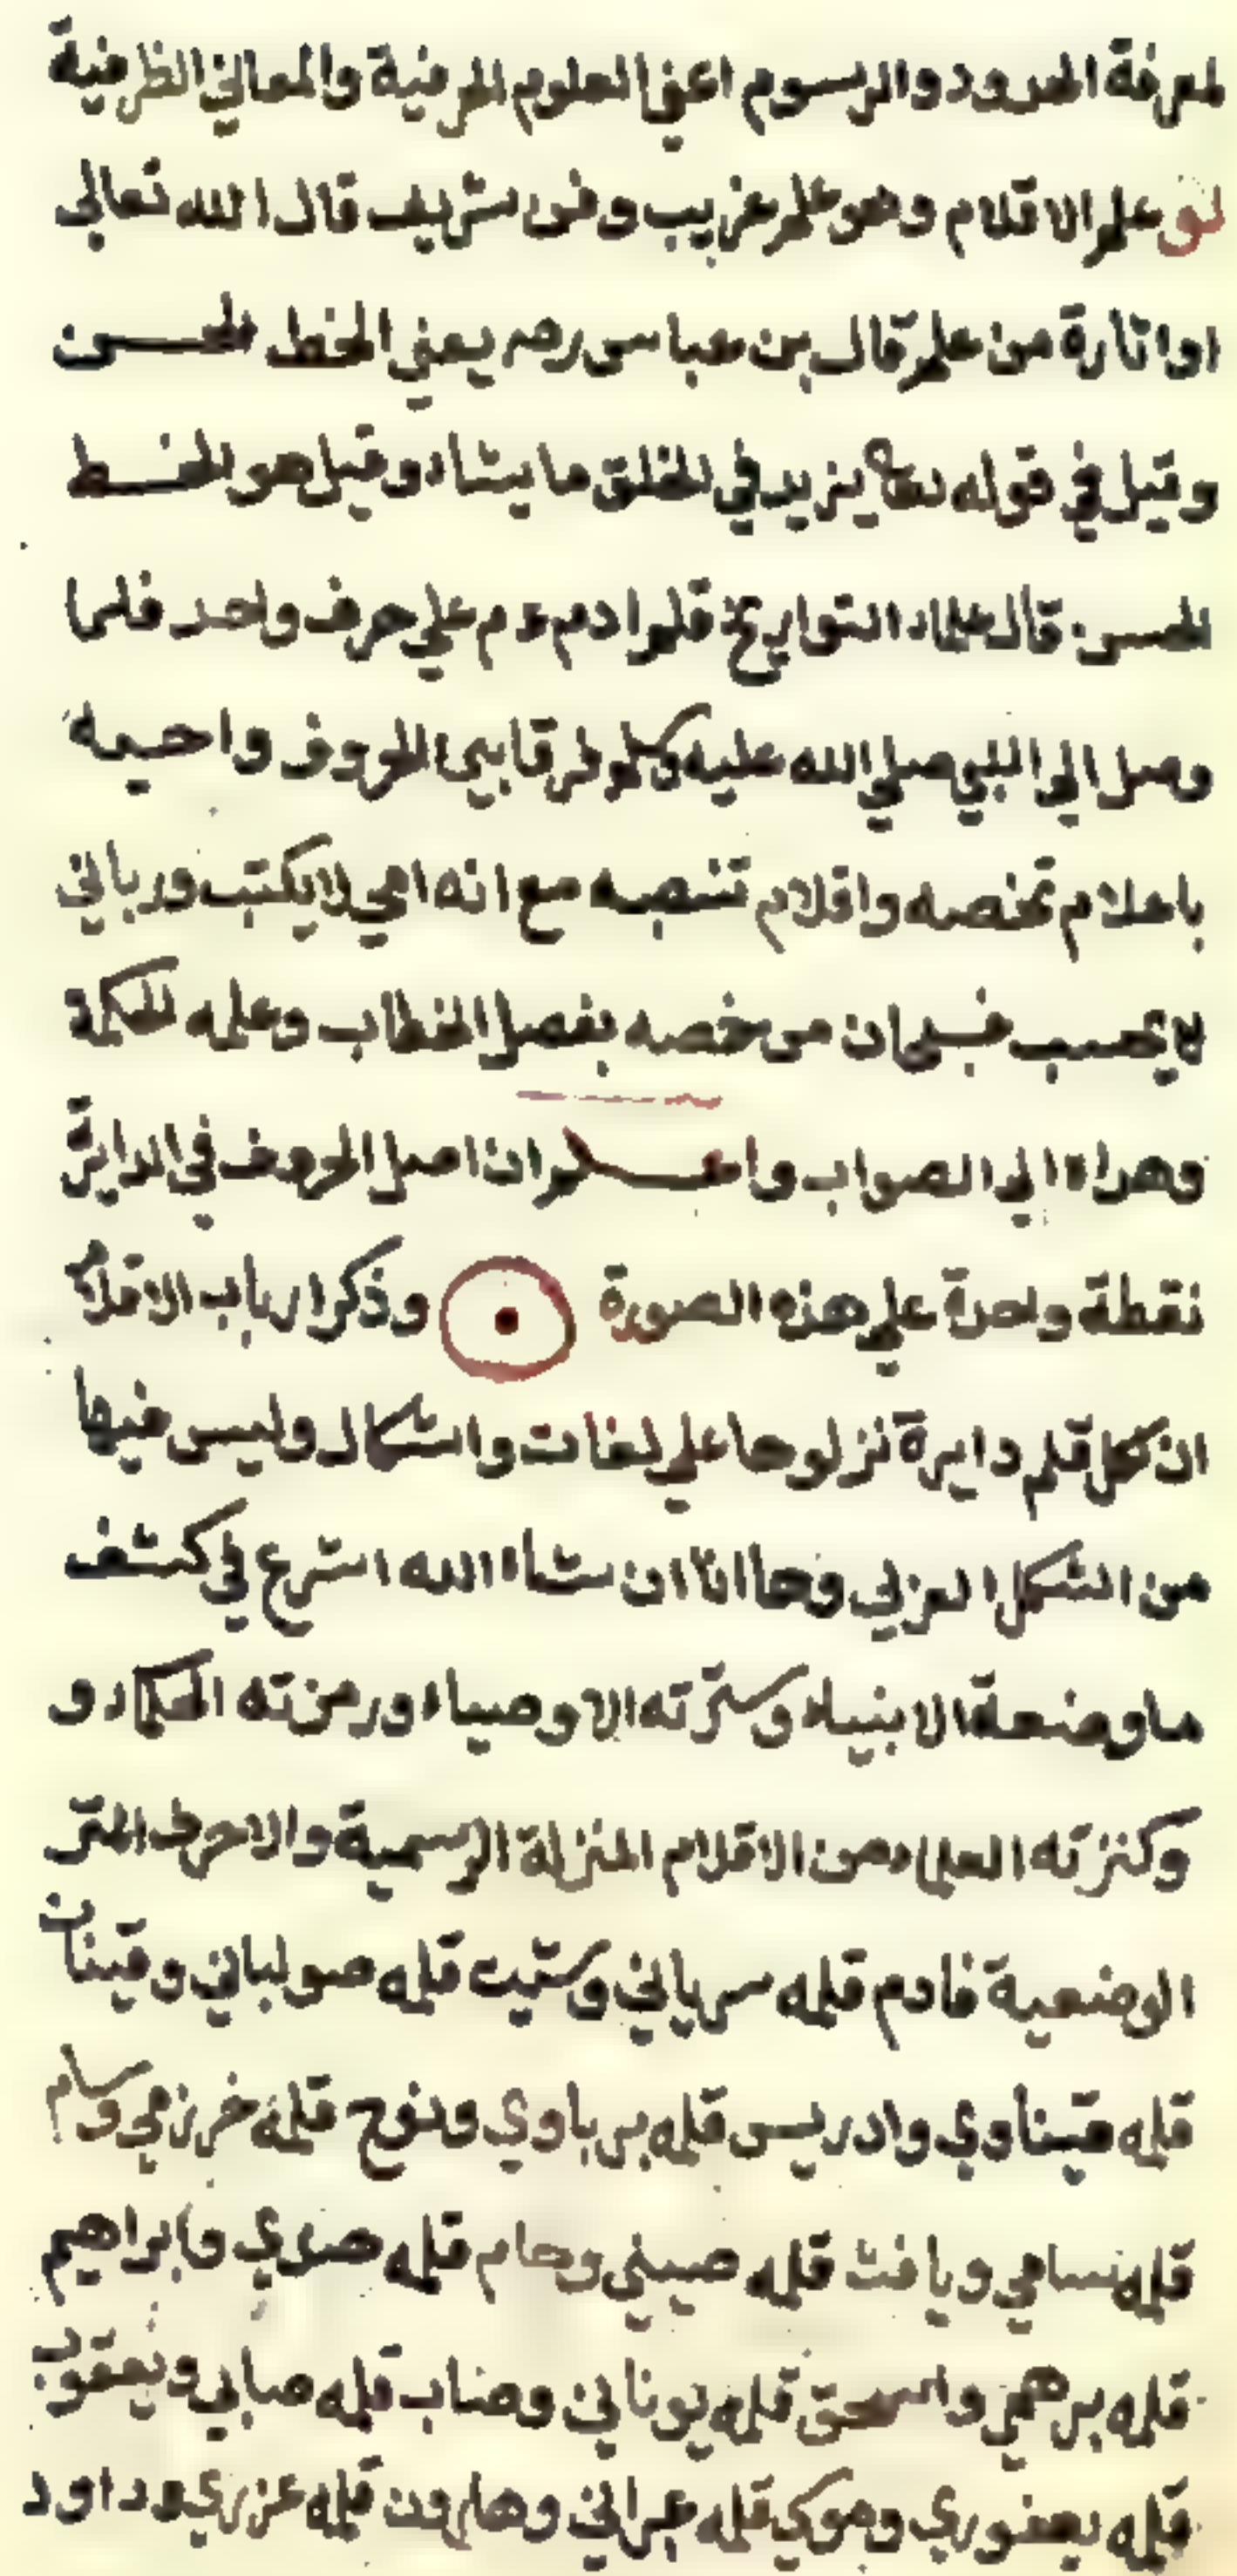 لمعرفة الحدود والرسوم اعني العلوم الحرفية والمعاني الظرفية
علم الاقلام وهو علم غريب وفن شريف قال الله تعالى
او اثارة من علم قال بن عباس رضه يعني الخط الحسن
وقيل في قوله تعا يزيد في الخلق ما يشاء وقيل هو الخط
الحسن قال علماء التواريخ قلم ادم ءم على حرف واحد فلما
وصل الى النبي صلى الله عليه وسلم الحروف واحيه
باعلام تخصه واقلام تنصبه مع انه امي لا يكتب ورباني
لا يحسب فسبحان من خصه بفصل الخطاب وعلمه الحكمة
وهداه الى الصواب واعلم ان اصل الحروف في الدايرة
نقطة واحدة على هذه الصورة وذكر ارباب الاقلام
ان كل قلم دايرة نزلوها على لغات واشكال وليس فيها
من الشكل العربي وها انا ان شاء الله اشرع في كشف
ما وضعة الانبياء وسترته الاوصياء ورمزته الحكماء و
وكنزته العلماء من الاقلام المنزلة الرسمية والاحرف المتر
الوضعية فادم قلمه سرياني وشيت قلمه صولباني وقينان
قلمه قيناوي وادريس قلمه برباوي ونوح قلمه خرزمي وسام
قلمه سامي ويافث قلمه صيني وحام قلمه وابراهيم
قلمه برهمي واسحق قلمه يوناني وصاب قلمه صابي ويعقوب
قلمه يعفوري وموسى قلمه عبراني وهارون قلمه عزري وداود